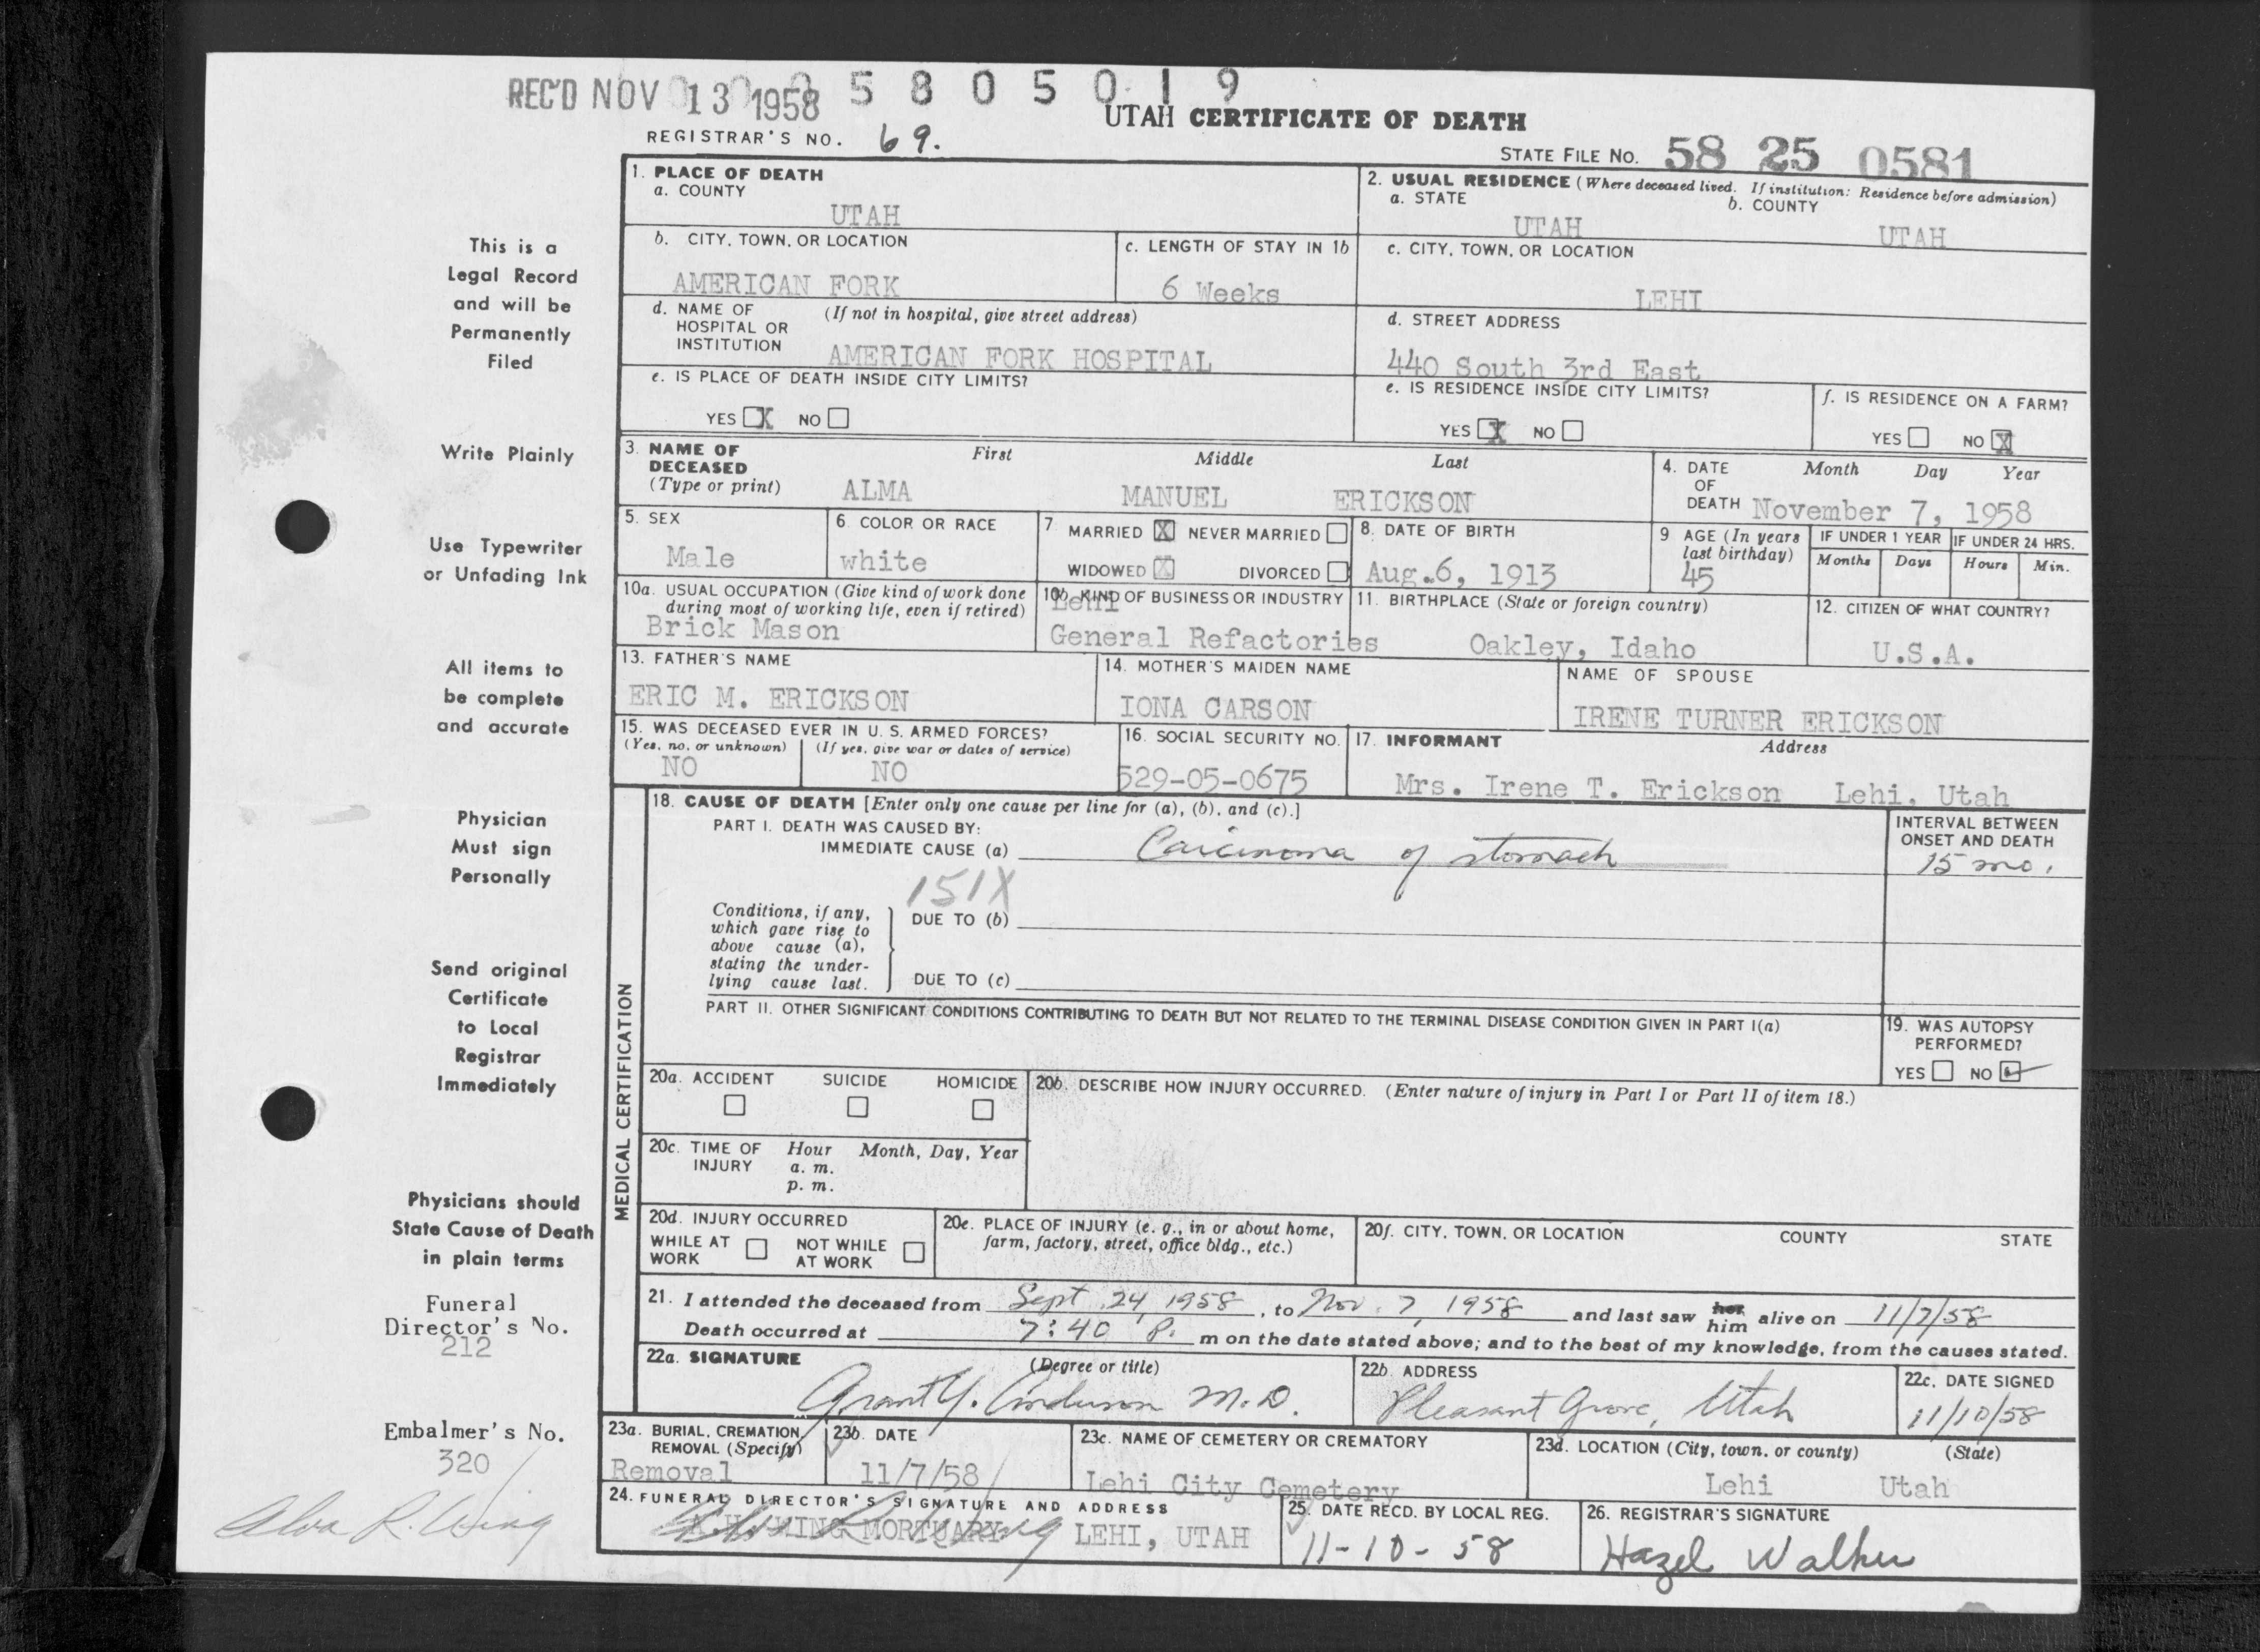 REC'D NOV 13 1958 5 8 0 5 0 1 9
UTAH CERTIFICATE OF DEATH
REGISTRAR'S NO. 69.
STATE FILE NO. 58 25 0581
This is a
Legal Record
and will be
Permanently
Filed
Write Plainly
Use Typewriter
or Unfading Ink
All items to
be complete
and accurate
Physician
Must sign
Personally
Send original
Certificate
to Local
Registrar
Immediately
Physicians should
State Cause of Death
in plain terms
Funeral
Director's No.
212
Embalmer's No.
320
Alva R. Wing
1. PLACE OF DEATH
a. COUNTY
UTAH
2. USUAL RESIDENCE (Where deceased lived. If institution: Residence before admission)
a. STATE b. COUNTY
UTAH UTAH
b. CITY, TOWN, OR LOCATION
AMERICAN FORK
c. LENGTH OF STAY IN 1b
6 Weeks
c. CITY, TOWN, OR LOCATION
LEHI
d. NAME OF (If not in hospital, give street address)
HOSPITAL OR
INSTITUTION AMERICAN FORK HOSPITAL
d. STREET ADDRESS
440 South 3rd East
e. IS PLACE OF DEATH INSIDE CITY LIMITS?
YES X NO
e. IS RESIDENCE INSIDE CITY LIMITS?
YES X NO
f. IS RESIDENCE ON A FARM?
YES NO X
3. NAME OF First Middle Last
DECEASED
(Type or print) ALMA MANUEL ERICKSON
4. DATE Month Day Year
OF
DEATH November 7, 1958
5. SEX
Male
6. COLOR OR RACE
white
7. MARRIED X NEVER MARRIED
WIDOWED X DIVORCED
8. DATE OF BIRTH
Aug.6, 1913
9 AGE (In years
last birthday)
45
IF UNDER 1 YEAR IF UNDER 24 HRS.
Months Days Hours Min.
10a. USUAL OCCUPATION (Give kind of work done
during most of working life, even if retired)
Brick Mason
10b. KIND OF BUSINESS OR INDUSTRY
Lehi
General Refactories
11. BIRTHPLACE (State or foreign country)
Oakley, Idaho
12. CITIZEN OF WHAT COUNTRY?
U.S.A.
13. FATHER'S NAME
ERIC M. ERICKSON
14. MOTHER'S MAIDEN NAME
IONA CARSON
NAME OF SPOUSE
IRENE TURNER ERICKSON
15. WAS DECEASED EVER IN U. S. ARMED FORCES?
(Yes, no, or unknown) (If yes, give war or dates of service)
NO NO
16. SOCIAL SECURITY NO.
529-05-0675
17. INFORMANT Address
Mrs. Irene T. Erickson Lehi, Utah
MEDICAL CERTIFICATION
18. CAUSE OF DEATH [Enter only one cause per line for (a), (b), and (c).]
PART I. DEATH WAS CAUSED BY:
IMMEDIATE CAUSE (a) Carcinoma of stomach
INTERVAL BETWEEN
ONSET AND DEATH
15 mo.
151X
Conditions, if any,
which gave rise to
above cause (a),
stating the under-
lying cause last.
DUE TO (b)
DUE TO (c)
PART II. OTHER SIGNIFICANT CONDITIONS CONTRIBUTING TO DEATH BUT NOT RELATED TO THE TERMINAL DISEASE CONDITION GIVEN IN PART I(a)
19. WAS AUTOPSY
PERFORMED?
YES NO
20a. ACCIDENT SUICIDE HOMICIDE
20b. DESCRIBE HOW INJURY OCCURRED. (Enter nature of injury in Part I or Part II of item 18.)
20c. TIME OF Hour Month, Day, Year
INJURY a. m.
p. m.
20d. INJURY OCCURRED
WHILE AT NOT WHILE
WORK AT WORK
20e. PLACE OF INJURY (e. g., in or about home,
farm, factory, street, office bldg., etc.)
20f. CITY, TOWN, OR LOCATION COUNTY STATE
21. I attended the deceased from Sept 24, 1958, to Nov. 7, 1958 and last saw her him alive on 11/7/58
Death occurred at 7:40 P. m on the date stated above; and to the best of my knowledge, from the causes stated.
22a. SIGNATURE (Degree or title)
Grant Y. Anderson M.D.
22b. ADDRESS
Pleasant Grove, Utah
22c. DATE SIGNED
11/10/58
23a. BURIAL, CREMATION,
REMOVAL (Specify)
Removal
23b. DATE
11/7/58
23c. NAME OF CEMETERY OR CREMATORY
Lehi City Cemetery
23d. LOCATION (City, town, or county) (State)
Lehi Utah
24. FUNERAL DIRECTOR'S SIGNATURE AND ADDRESS
WING MORTUARY LEHI, UTAH
25. DATE RECD. BY LOCAL REG.
11-10-58
26. REGISTRAR'S SIGNATURE
Hazel Walker